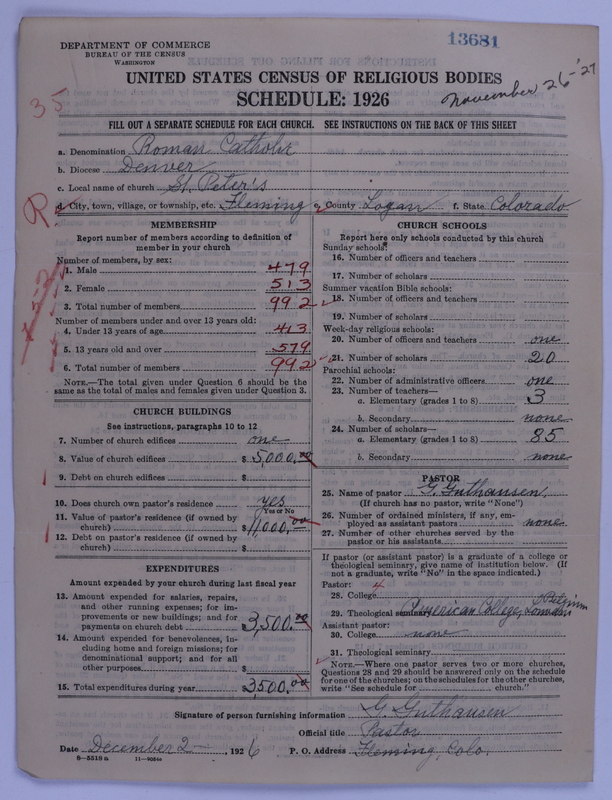 13681
DEPARTMENT OF COMMERCE
BUREAU OF THE CENSUS
WASHINGTON
UNITED STATES CENSUS OF RELIGIOUS BODIES
SCHEDULE: 1926
November 26-'27
35
FILL OUT A SEPARATE SCHEDULE FOR EACH CHURCH. SEE INSTRUCTIONS ON THE BACK OF THIS SHEET
a. Denomination Roman Catholic
b. Diocese Denver
c. Local name of church St. Peter's
d. City, town, village, or township, etc. Fleming e. County Logan f. State Colorado
R
MEMBERSHIP
Report number of members according to definition of member in your church
Number of members, by sex:
1. Male 479
2. Female 513
3. Total number of members 992
Number of members under and over 13 years old:
4. Under 13 years of age 413
5. 13 years old and over 579
6. Total number of members 992
NOTE.—The total given under Question 6 should be the same as the total of males and females given under Question 3.
CHURCH BUILDINGS
See instructions, paragraphs 10 to 12
7. Number of church edifices one
8. Value of church edifices $5,000.00
9. Debt on church edifices $
10. Does church own pastor's residence yes
Yes or No
11. Value of pastor's residence (if owned by church) $11,000.00
12. Debt on pastor's residence (if owned by church) $
EXPENDITURES
Amount expended by your church during last fiscal year
13. Amount expended for salaries, repairs, and other running expenses; for improvements or new buildings; and for payments on church debt $3,500.00
14. Amount expended for benevolences, including home and foreign missions; for denominational support; and for all other purposes $
15. Total expenditures during year $3500.00
CHURCH SCHOOLS
Report here only schools conducted by this church
Sunday schools:
16. Number of officers and teachers
17. Number of scholars
Summer vacation Bible schools:
18. Number of officers and teachers
19. Number of scholars
Week-day religious schools:
20. Number of officers and teachers one
21. Number of scholars 20
Parochial schools:
22. Number of administrative officers one
23. Number of teachers—
a. Elementary (grades 1 to 8) 3
b. Secondary none
24. Number of scholars—
a. Elementary (grades 1 to 8) 85
b. Secondary none
PASTOR
25. Name of pastor G. Guthausen
(If church has no pastor, write "None")
26. Number of ordained ministers, if any, employed as assistant pastors none
27. Number of other churches served by the pastor or his assistants
If pastor (or assistant pastor) is a graduate of a college or theological seminary, give name of institution below. (If not a graduate, write "No" in the space indicated.)
Pastor: 4
28. College
29. Theological seminary American College, Belgium
Assistant pastor:
30. College none
31. Theological seminary
NOTE.—Where one pastor serves two or more churches, Questions 28 and 29 should be answered only on the schedule for one of the churches; on the schedules for the other churches, write "See schedule for church."
Signature of person furnishing information G. Guthausen
Official title Pastor
Date December 2 1926 P. O. Address Fleming, Colo.
8—5518a 11—9056a